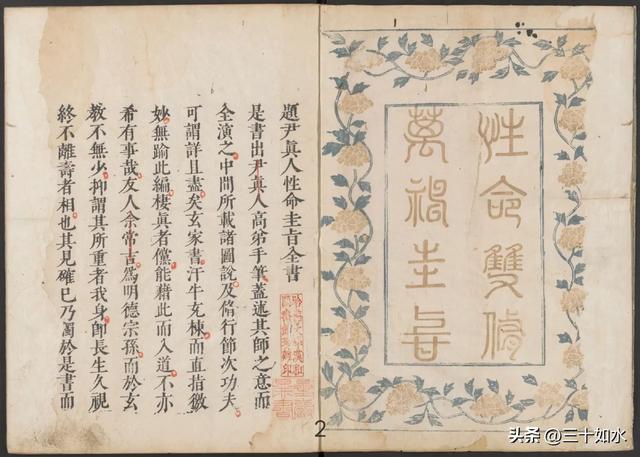 性命雙脩
萬神圭旨
題尹眞人性命圭旨全書
是書出尹眞人高弟手筆蓋述其師之意而
全演之中間所載諸圖說及脩行節次功夫
可謂詳且盡矣玄家書汗牛充棟而直指徼
妙無踰此編棲眞者儻能藉此而入道不亦
希有事哉友人余常吉爲明德宗孫而於玄
教不無少抑謂其所重者我身卽長生久視
終不離壽者相也其見確已乃獨於是書而
2
头条 @三十如水